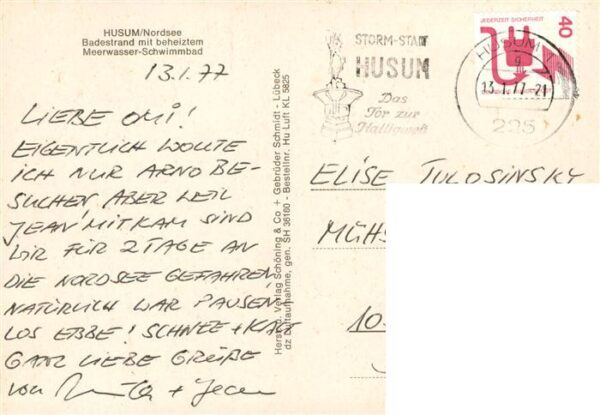 HUSUM/Nordsee
Badestrand mit beheiztem
Meerwasser-Schwimmbad
13.1.77
LIEBE OMI!
EIGENTLICH WOLLTE
ICH NUR ARNO BE-
SUCHEN ABER WEIL
JEAN MITKAM SIND
WIR FÜR 2 TAGE AN
DIE NORDSEE GEFAHREN
NATÜRLICH WAR PAUSEN
LOS EBBE! SCHNEE + KALT
GANZ LIEBE GRÜßE
von + Jean
Herst. u. Verlag Schöning & Co + Gebrüder Schmidt - Lübeck
dz Luftaufnahme, gen. SH 36160 - Bestellnr. Hu Luft KL 5825
STORM-STADT
HUSUM
Das
Tor zur
Halligwelt
JEDERZEIT SICHERHEIT
40
HUSUM
13.1.77-21
225
ELISE TULOSINSKY
MÜHS
10